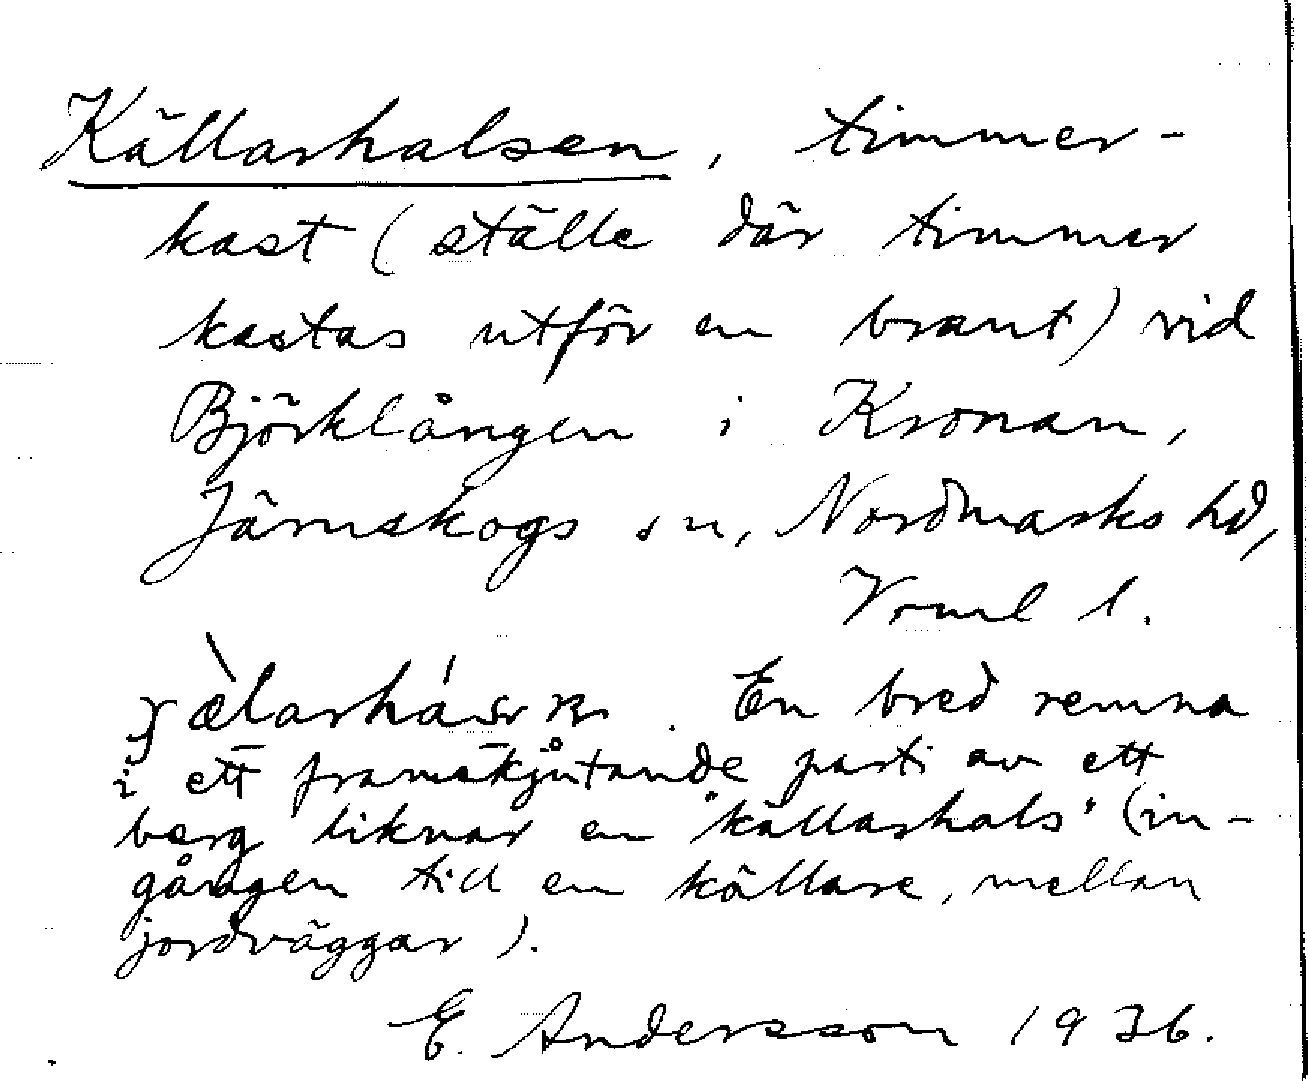 Källarhalsen, timmer-
kast (ställe där timmer
kastas utför en brant) vid
Björklången i Kronan,
Järnskogs sn, Nordmarks hd,
Vrml l.
En bred remna
i ett framskjutande parti av ett
berg liknar en "källarhals" (in-
gången till en källare, mellan
jordväggar).
E. Andersson 1936.